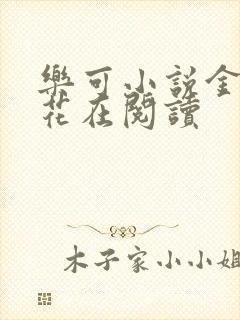 樂可小説金
花在閱讀
木子家小小姐